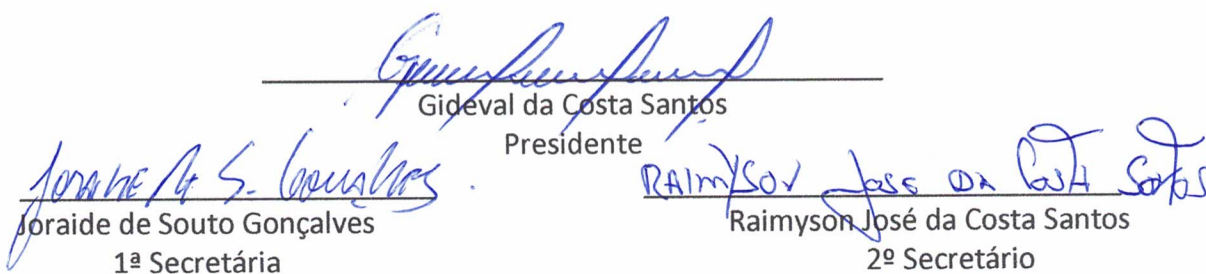 Gideval da Costa Santos
Presidente
Joraide de Souto Gonçalves
1ª Secretária
RAIMYSON JOSE DA COSTA SANTOS
Raimyson José da Costa Santos
2º Secretário